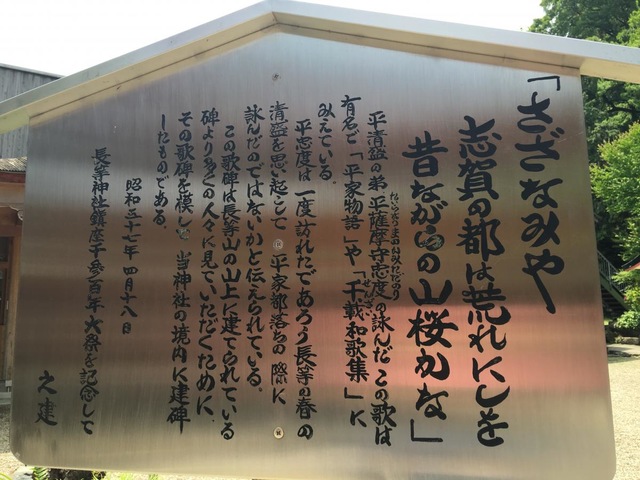 「さざなみや
志賀の都は荒れにしを
昔ながらの山桜かな」
平清盛の弟 平薩摩守忠度の詠んだ この歌は
有名で「平家物語」や「千載和歌集」に
みえている。
平忠度は 一度訪れたであろう長等の春の
清盛を思い起こして 平家都落ちの際に
詠んだのではないかと伝えられている。
この歌碑は長等山の山上に建てられている
碑より多くの人々に見ていただくために
その歌碑を模し 当神社の境内に建碑
したものである。
昭和三十七年 四月十八日
長等神社鎮座千参百年大祭を記念して
之建